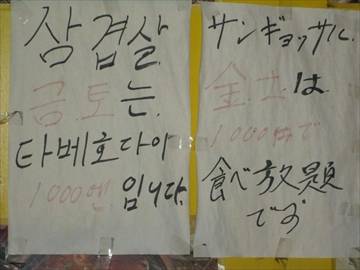 삼겹살
금.토는.
타베호다이
1000엔 입니다.
サンギョッサル.
金.土.は
1000円で
食べ放題
です